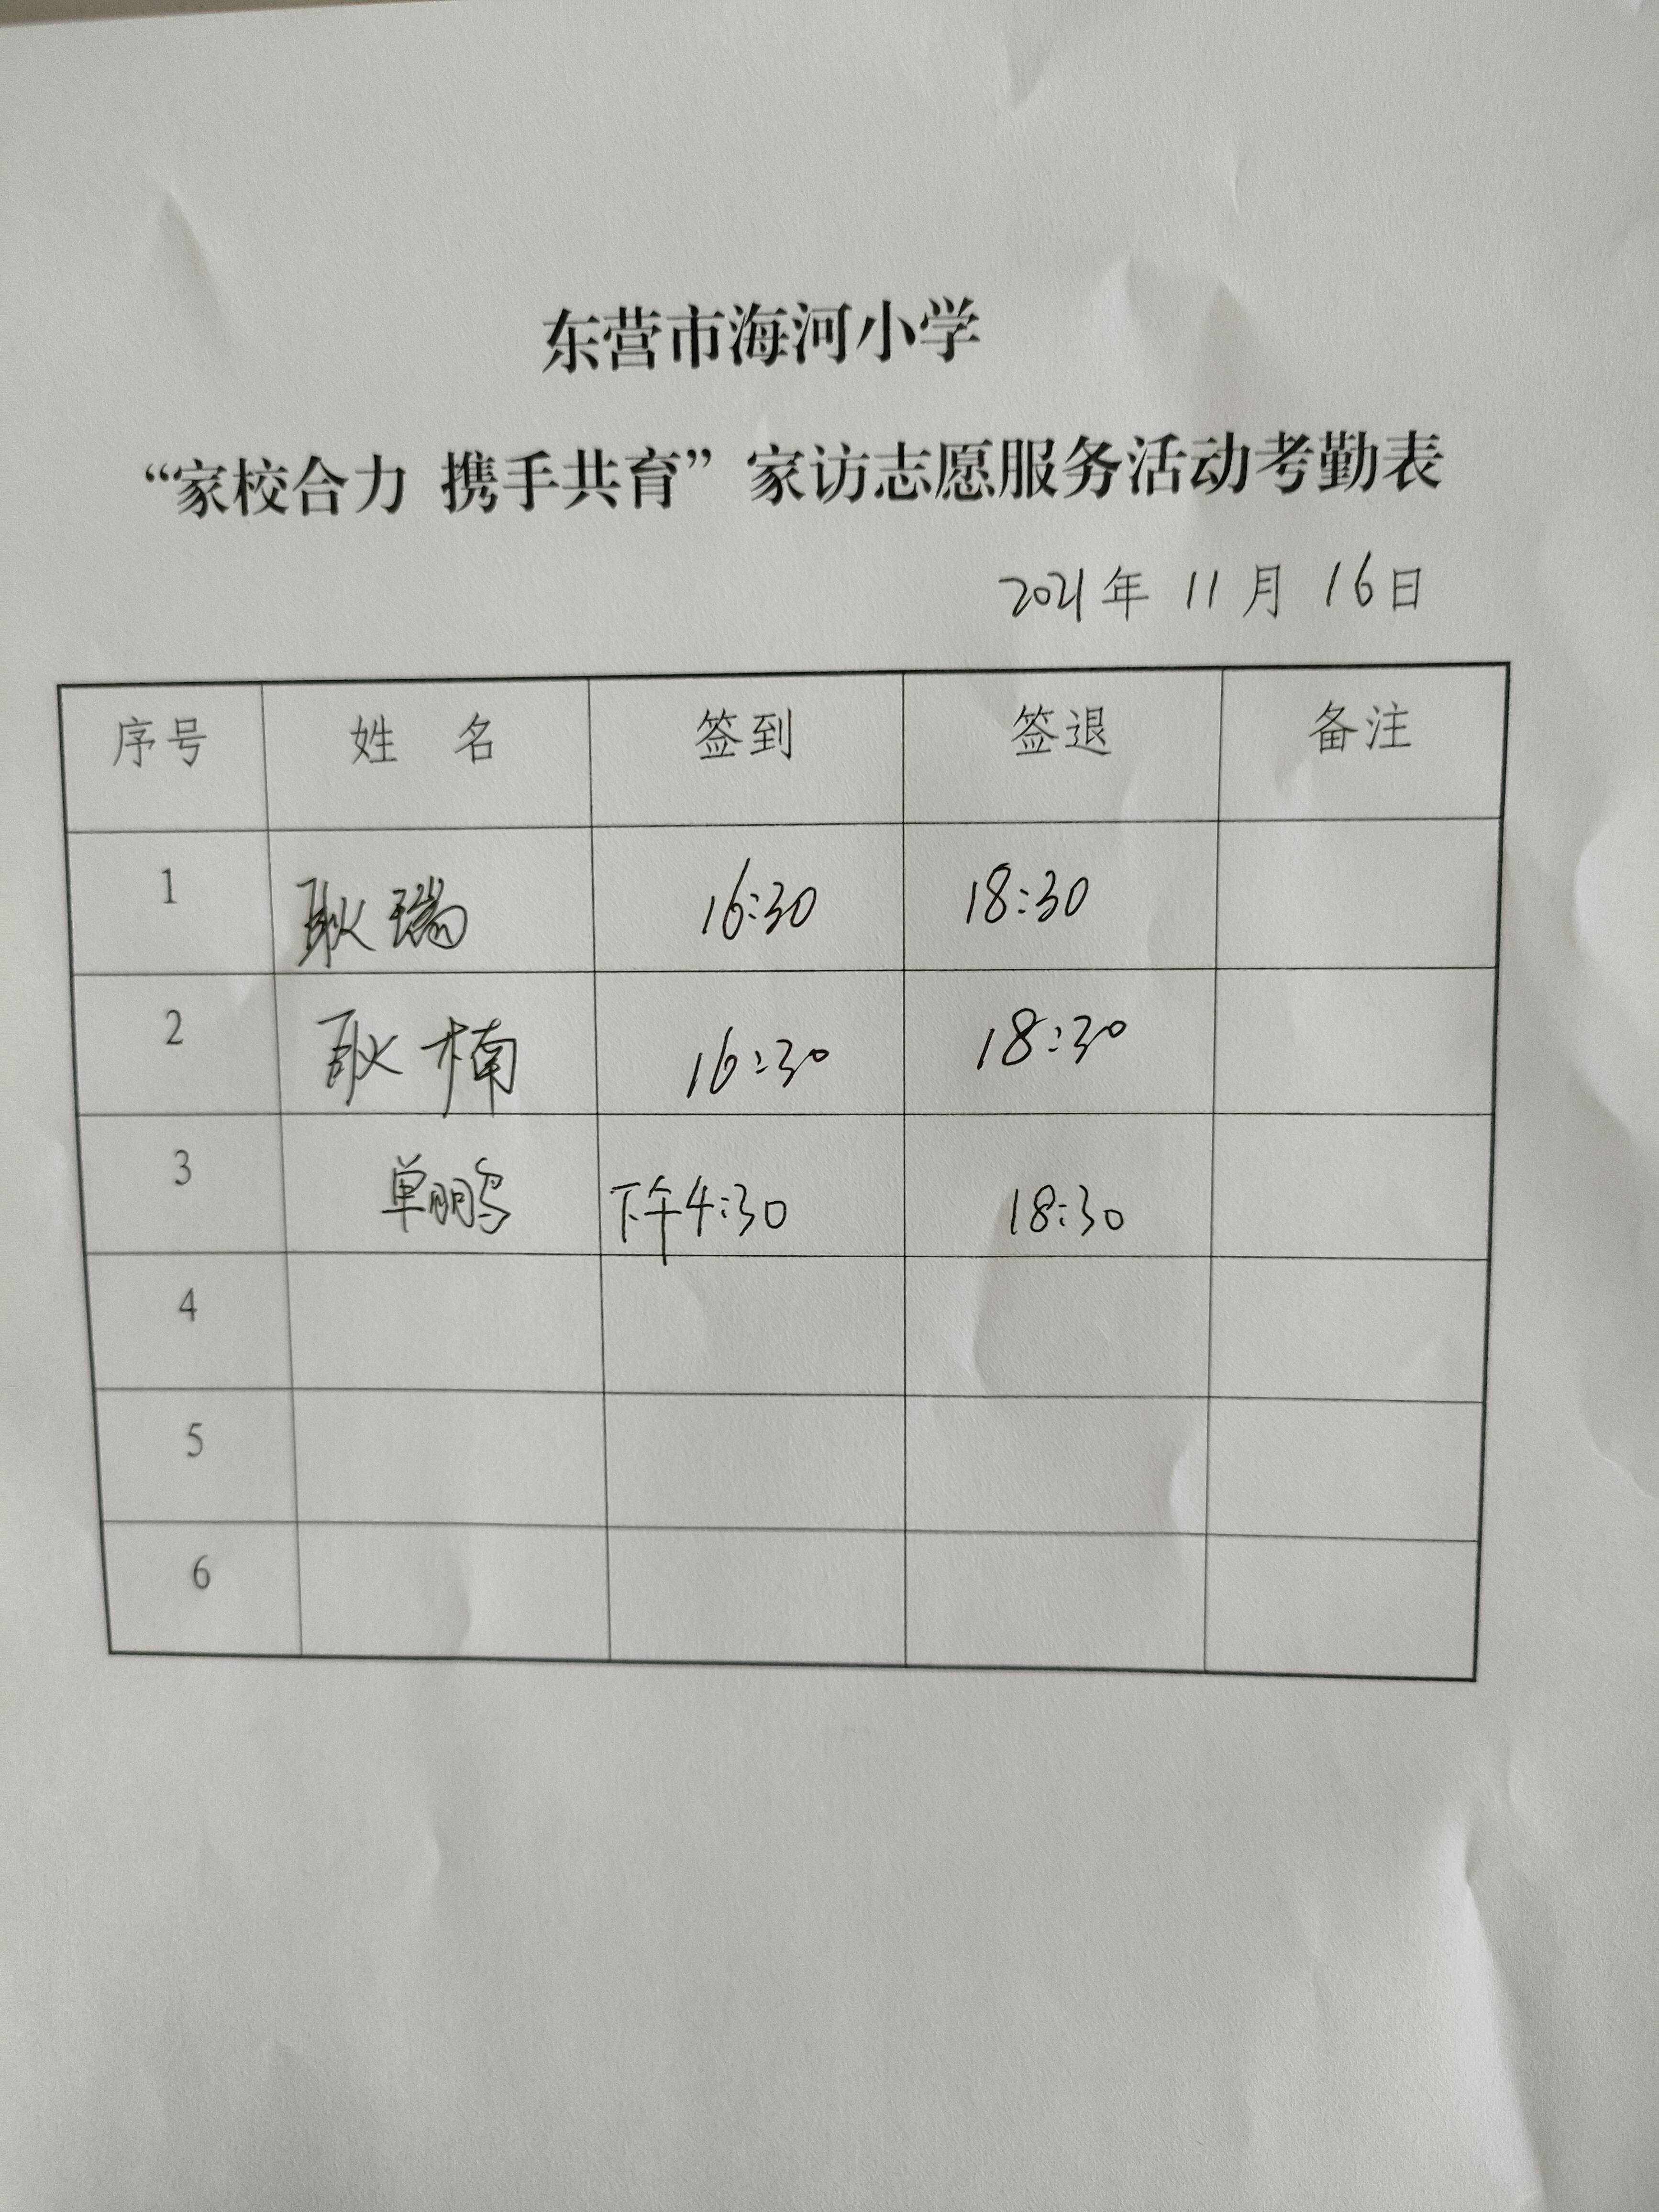 东营市海河小学
“家校合力 携手共育”家访志愿服务活动考勤表
2021年 11月 16日
序号 姓 名 签到 签退 备注
1 耿瑞 16:30 18:30
2 耿楠 16:30 18:30
3 单鹏 下午4:30 18:30
4
5
6